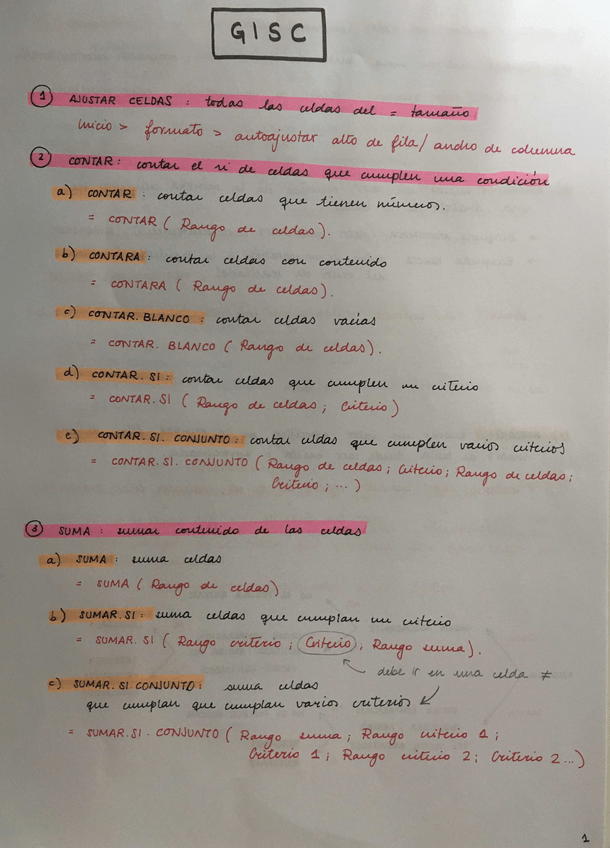 GISC
1 AJUSTAR CELDAS : todas las celdas del = tamaño
Inicio > formato > autoajustar alto de fila / ancho de columna
2 CONTAR : contar el nº de celdas que cumplen una condición
a) CONTAR : contar celdas que tienen números.
= CONTAR ( Rango de celdas ).
b) CONTARA : contar celdas con contenido
= CONTARA ( Rango de celdas ).
c) CONTAR. BLANCO : contar celdas vacías
= CONTAR. BLANCO ( Rango de celdas ).
d) CONTAR. SI : contar celdas que cumplen un criterio
= CONTAR. SI ( Rango de celdas ; Criterio )
e) CONTAR. SI. CONJUNTO : contar celdas que cumplen varios criterios
= CONTAR. SI. CONJUNTO ( Rango de celdas ; Criterio ; Rango de celdas ;
Criterio ; ... )
3 SUMA : sumar contenido de las celdas
a) SUMA : suma celdas
= SUMA ( Rango de celdas )
b) SUMAR. SI : suma celdas que cumplan un criterio
= SUMAR. SI ( Rango criterio ; Criterio ; Rango suma ).
debe ir en una celda ≠
c) SUMAR. SI CONJUNTO : suma celdas
que cumplan que cumplan varios criterios
= SUMAR. SI. CONJUNTO ( Rango suma ; Rango criterio 1 ;
Criterio 1 ; Rango criterio 2 ; Criterio 2 ... )
1